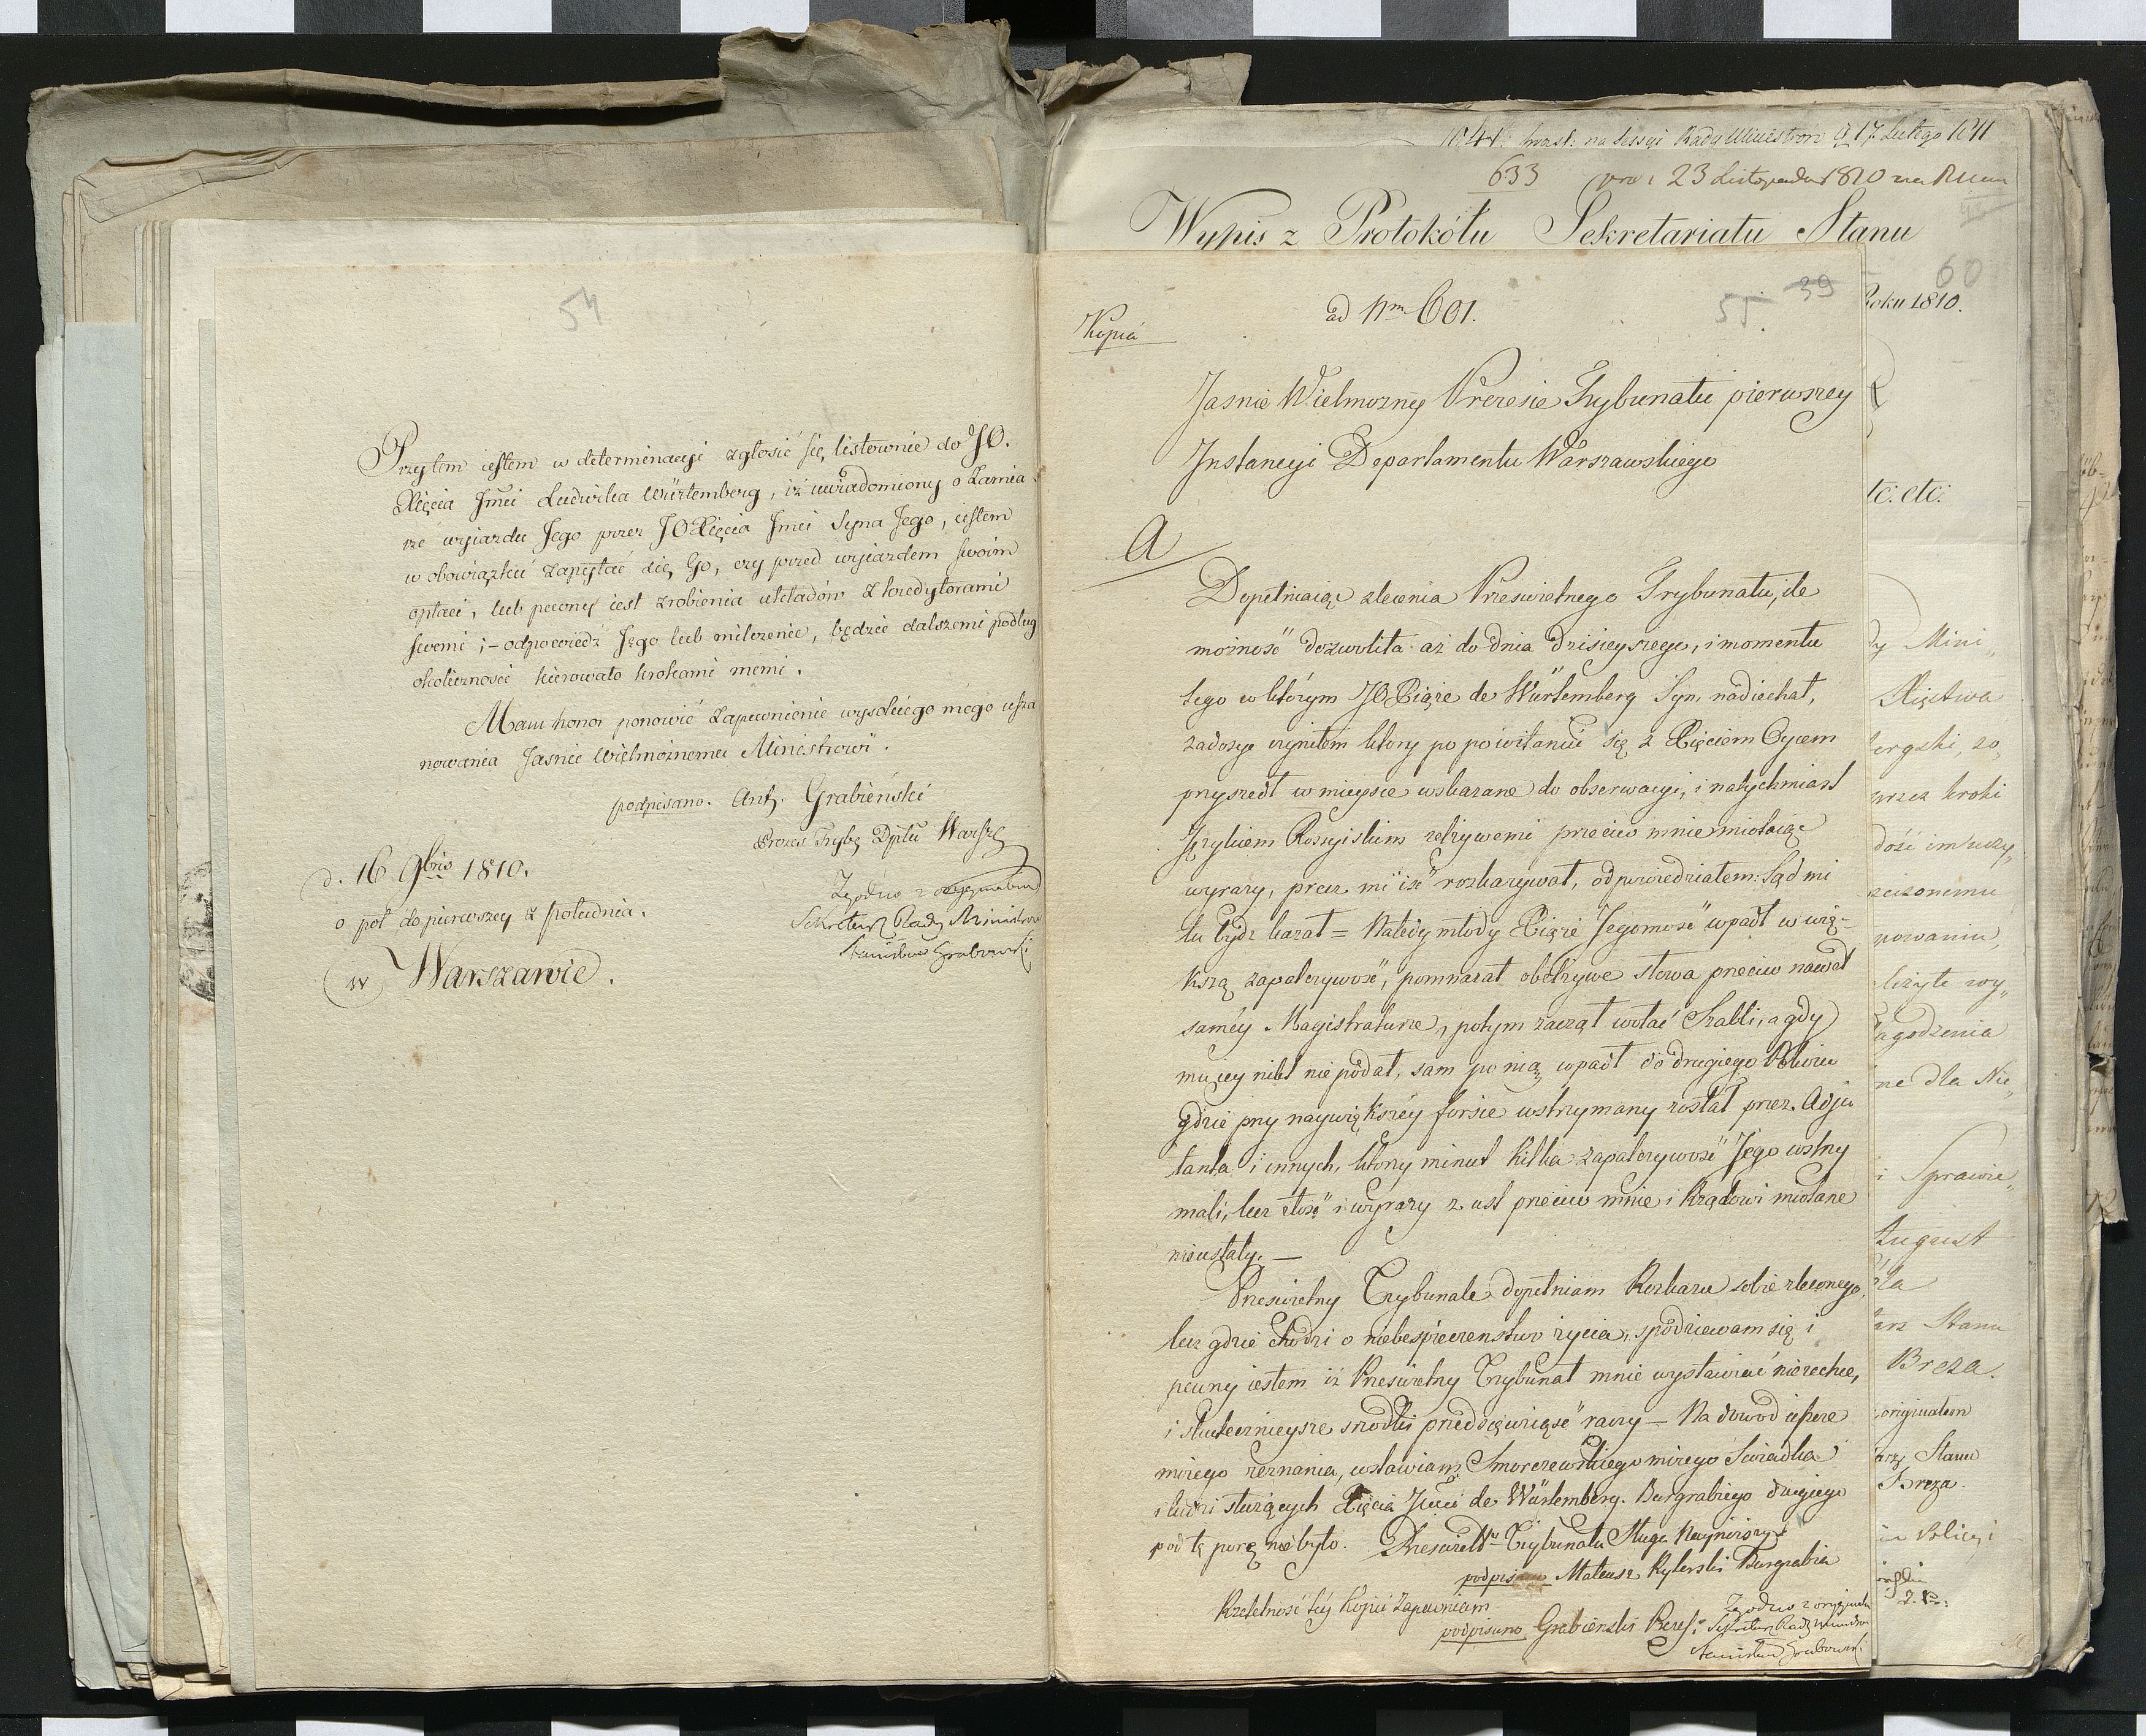 54
Przytem iestem w determinacyi zgłosić się listownie do JO.
Xięcia Jmci Ludwika Würtemberg, iż uwiadomiony o Zamia
rze wyiazdu Jego przez JO Xięcia Jmci Syna Jego, iestem
w obowiązku zapytać się Go, czy przed wyiazdem swoim
opłaci, lub pewny iest zrobienia układów z kredytorami
swemi ;- odpowiedź Jego lub milczenie, będzie dalszemi podług
okoliczności kierowało krokami memi.
Mam honor ponowić zapewnienie wysokiego mego usza
nowania Jaśnie Wielmożnemu Ministrowi.
podpisano. Ant. Grabieński
Prezes Tryb. Dpttu Warsz
d. 16 9bris 1810.
o poł do pierwszey z południa.
w Warszawie.
Zgodno z oryginałem
Sekretarz Rady Ministrów
Stanisław Grabowski
na Sessyi Rady Ministrow d 17 Lutego 1811
633 23 Listopada 1810
Wypis z Protokółu Sekretariatu Stanu
60
Roku 1810.
Kopia
ad Nm 601.
55. 39
Jasnie Wielmozny Prezesie Trybunału pierwszey
Instancyi Departamentu Warszawskiego
A
Dopełniaiąc zlecenia Prześwietnego Trybunału, ile
możność dozwoliła aż do dnia dzisieyszego, i momentu
tego w którym JO Xiąże de Würtemberg Syn, nadiechał,
zadosyc czyniłem który po powitaniu się z Xięciem Oycem
przyszedł w mieysce wskazane do obserwacyi, i natychmiast
Językiem Rossyiskim zelżywemi przeciw mnie miotaiąc
wyrazy, precz mi iść rozkazywał, odpowiedziałem: Sąd mi
tu bydz kazał = Natedy młody Xiąże Jegomość wpadł w wię-
kszą zapalczywość, pomnażał obelżywe słowa przeciw nawet
saméy Magistraturze, potym zaczął wołać Szabli, a gdy
mu iey nikt nie podał, sam po nią wpadł do drugiego Pokoiu
gdzie przy naywiększéy forsie wstrzymany został przez Adju
tanta i innych, którzy minut kilka zapalczywość Jego wstrzy
mali, lecz złość i wyrazy z ust przeciw mnie i Rządowi miotane
nieustały. —
Prześwietny Trybunale dopełniam Rozkazu sobie zleconego,
lecz gdzie chodzi o niebespieczenstwo życia, spodziewam się i
pewny iestem iż Prześwietny Trybunał mnie wystawiać niezechce,
i skutecznieysze srodki przedsięwziąść raczy — Na dowod ieszcze
moiego zeznania, wstawiam Smorczewskiego moiego Swiadka
i ludzi służących Xięcia Jmci de Würtemberg. Burgrabiego drugiego
pod tę porę nie było. Prześwietgo Trybunału Sługa Nayniższy
podpisano Mateusz Rylerski Burgrabia
Rzetelność tey kopii zapewniam
podpisano Grabieński Prezes
Zgodno z oryginałem
Sekretarz Rady Ministrów
Stanisław Grabowski
tc. etc.
dy Mini„
Xięstwa
przez kroki
powaniu,
łagodzenia
ne dla Nie„
i Sprawie„
August
tarz Stanu
Breza.
oryginałem
Stanu
Breza.
Policyi